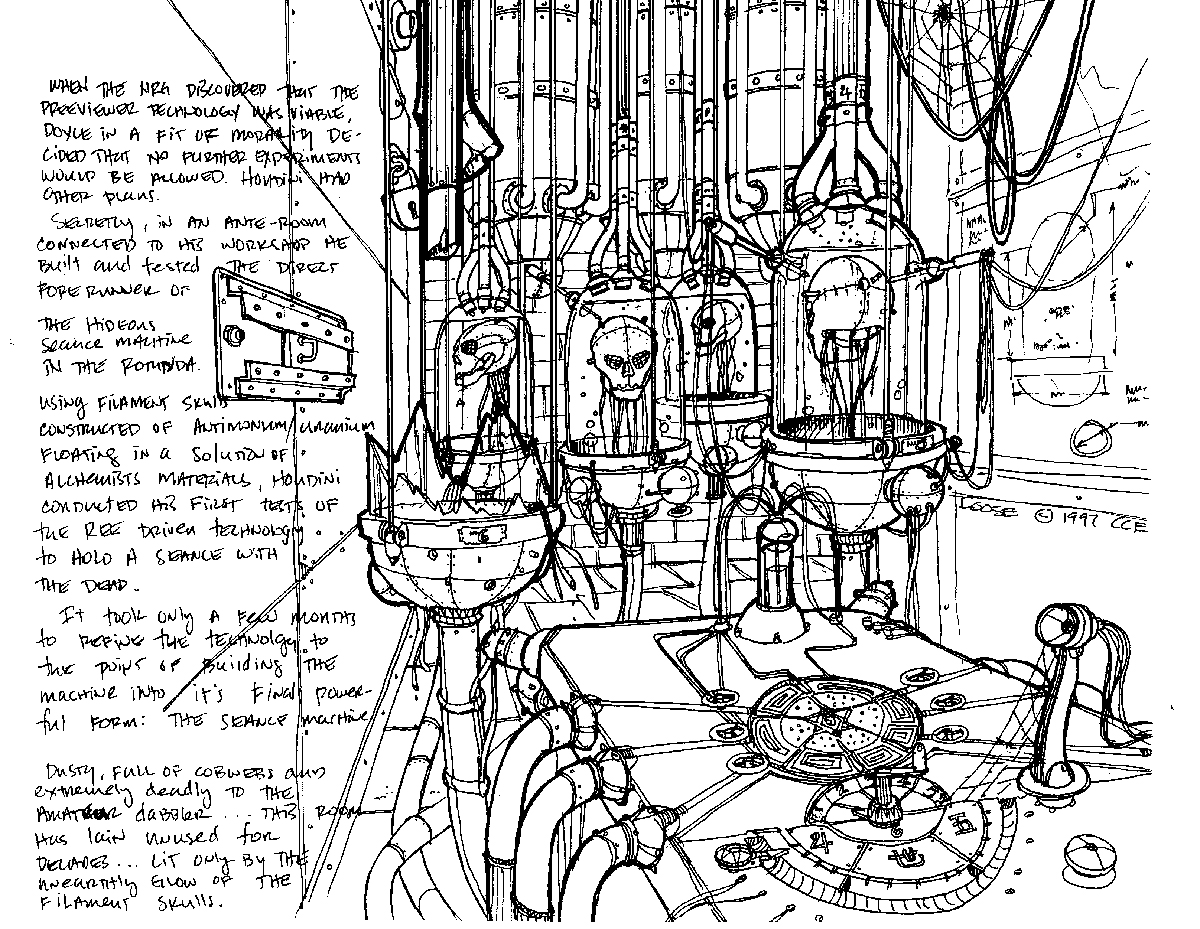 WHEN THE NRG DISCOVERED THAT THE
PREVIEWER TECHNOLOGY WAS VIABLE,
DOYLE IN A FIT OF MORALITY DE-
CIDED THAT NO FURTHER EXPERIMENTS
WOULD BE ALLOWED. HOUDINI HAD
OTHER PLANS.
SECRETLY, IN AN ANTE-ROOM
CONNECTED TO HIS WORKSHOP HE
BUILT and tested THE DIRECT
FORERUNNER OF
THE HIDEOUS
SEANCE MACHINE
IN THE ROTUNDA.
USING FILAMENT SKULLS
CONSTRUCTED OF ANTIMONIUM/URANIUM
FLOATING IN A SOLUTION OF
ALCHEMISTS MATERIALS, HOUDINI
CONDUCTED HIS FIRST TESTS OF
the REE DRIVEN TECHNOLOGY
to HOLD A SEANCE WITH
THE DEAD.
It took only A FEW MONTHS
to REFINE THE TECHNOLOGY to
the POINT OF BUILDING THE
MACHINE INTO IT'S FINAL POWER-
ful FORM: THE SEANCE MACHINE
DUSTY, FULL OF COBWEBS and
extremely deadly to THE
AMATEUR dabbler... THIS ROOM
HAS lain unused for
DECADES... LIT ONLY BY THE
UNEARTHLY GLOW OF THE
FILAMENT SKULLS.
4
6
LOOSE © 1997 CCE